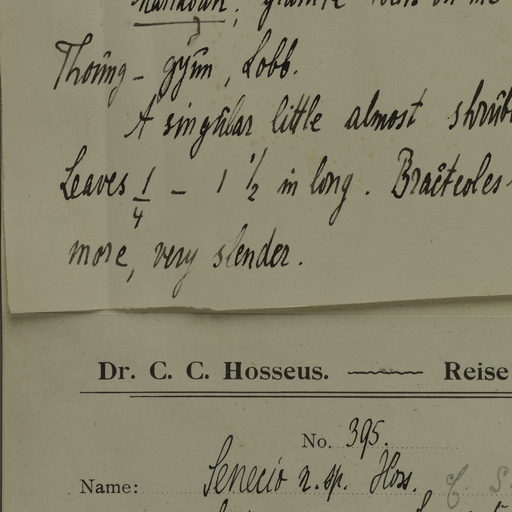 granite
Thoung-gyun, Lobb.
A singular little almost shrub
Leaves 1/4 – 1 1/2 in long. Bracteoles
more, very slender.
Dr. C. C. Hosseus. Reise
No. 395.
Name: Senecio n. sp. Hoss.